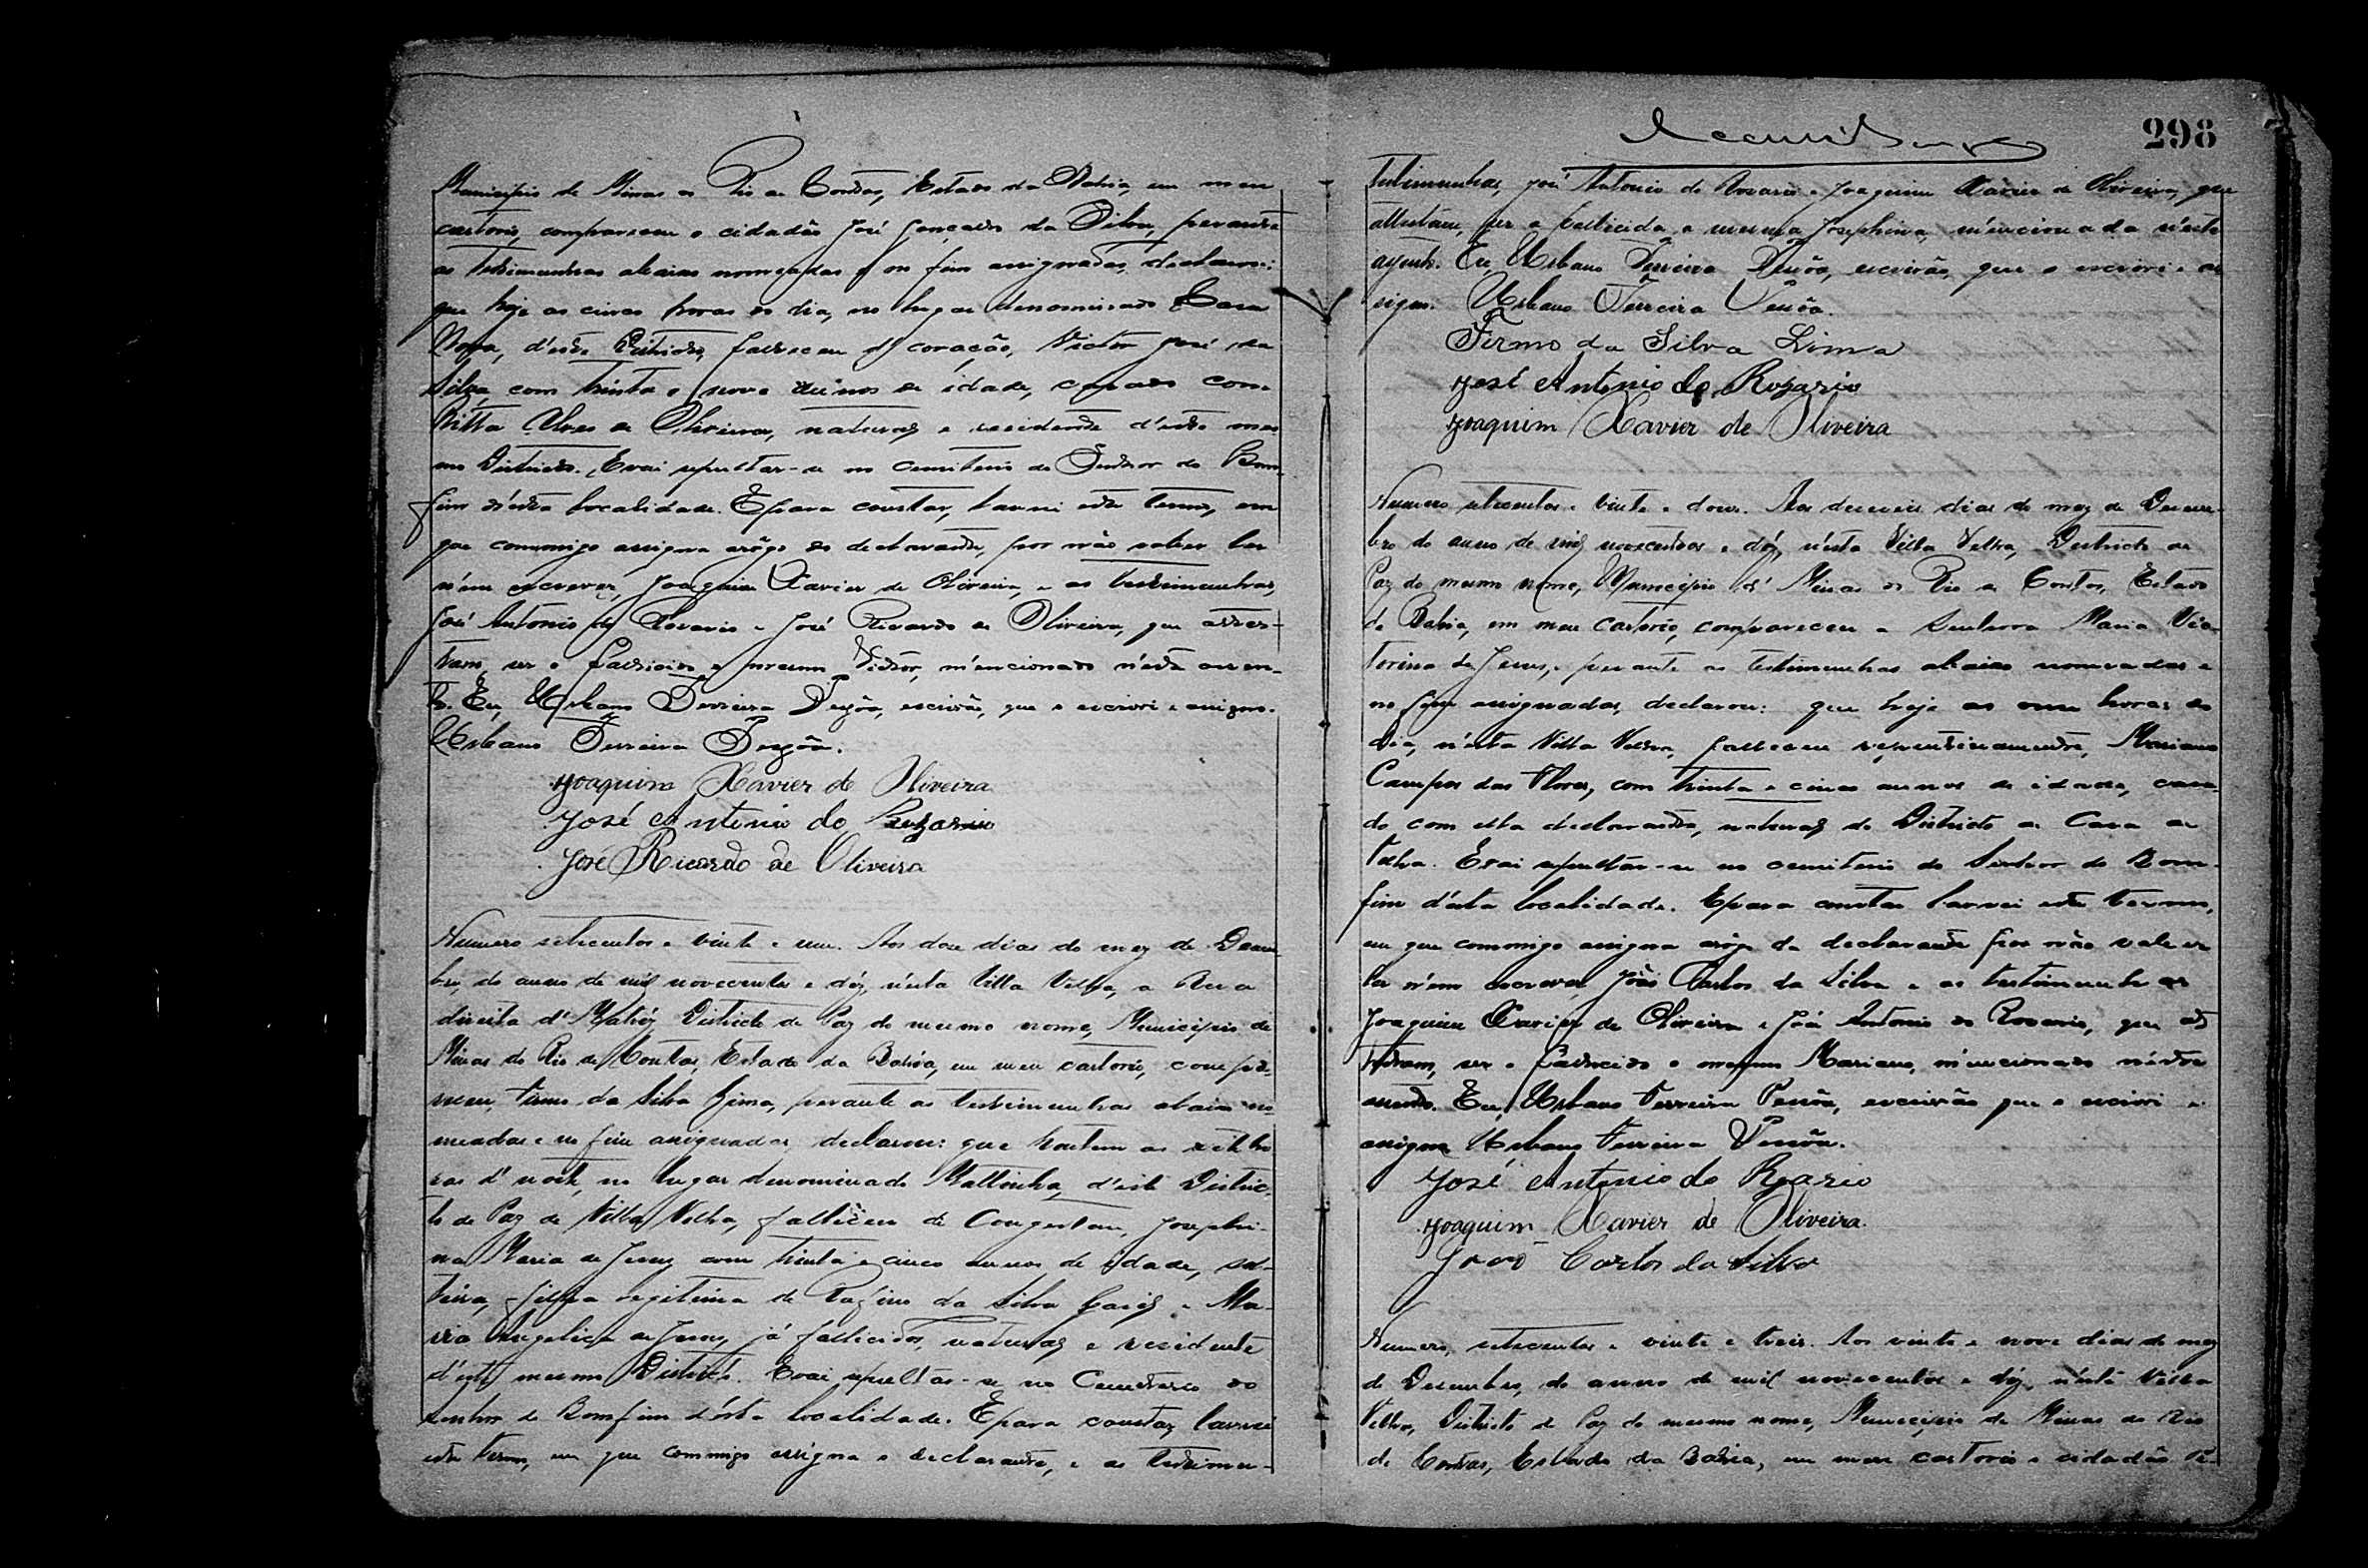 Municipio de Minas do Rio de Contas, Estado da Bahia, em meu
cartorio, compareceu o cidadão José Gonçalves da Silva, perante
as testimunhas abaixo nomeadas e no fim assignadas, declarou:
que hoje as cinco horas do dia, no lugar denominado Casa
Nova, d'este Districto, falleceu de coração, Victor José da
Silva, com trinta e nove annos de idade, casado com
Ritta Alves de Oliveira, natural e residente d'este mes-
mo Districto. E vai sepultar-se no cemiterio do Senhor do Bom-
fim d'esta localidade. E para constar, lavrei este termo, em
que commigo assigna arôgo do declarante, por não saber ler
n'em escrever, Joaquim Xavier de Oliveira, e as testimunhas,
José Antonio do Rosario e José Ricardo de Oliveira, que attes-
tam, ser o fallecido o mesmo Victor, mencionado n'este assen-
to. Eu, Urbano Ferreira, escrivão, que o escrevi e assigno.
Urbano Ferreira
Joaquim Xavier de Oliveira
José Antonio do Rozario
José Ricardo de Oliveira
Numero setecentos e vinte e um. Aos doze dias do mez de Dezem
bro, do anno de mil novecentos e déz, n'esta Villa Velha, a Rua
direita d' Districto de Paz do mesmo nome, Municipio de
Minas do Rio de Contas, Estado da Bahia, em meu cartorio, compa-
receu, Firmo da Silva Lima, perante as testimunhas abaixo no-
meadas e no fim assignadas, declarou: que hontem as sete ho
ras d' noite, no lugar denominado Mattinha, d'este Distric-
to de Paz de Villa Velha, falleceu de Josephi-
na Maria de Jesus, com trinta e cinco annos de idade, sol-
teira, filha legitima de da Silva e Ma-
ria Angelica de Jesus, já fallecidos, natural e residente
d'este mesmo Districto. E vai sepultar-se no Cemiterio do
Senhor do Bomfim d'esta localidade. E para constar, lavrei
este termo, em que commigo assigna o declarante, e as testimu-
298
testimunhas, José Antonio do Rosario e Joaquim Xavier de Oliveira, que
attestam, ser a fallecida, a mesma Josephina, mencionada n'este
assento. Eu, Urbano Ferreira, escrivão, que o escrevi e as
signo. Urbano Ferreira
Firmo da Silva Lima
José Antonio do Rozario
Joaquim Xavier de Oliveira
Numero setecentos e vinte e dous. Aos dias do mez de Dezem-
bro do anno de mil novecentos e déz, n'esta Villa Velha, Districto de
Paz do mesmo nome, Municipio d' Minas do Rio de Contas, Estado
da Bahia, em meu cartorio, compareceu a Senhora Maria Vic-
torina de Jesus, e perante as testimunhas abaixo nomeadas e
no fim assignadas, declarou: que hoje as onze horas do
dia, n'esta Villa Velha, falleceu repentinamente, Mariano
Campos das Flores, com trinta e cinco annos de idade, casa-
do com esta declarante, natural do Districto de Casa de
Telha. E vai sepultar-se no cemiterio do Senhor do Bom-
fim d'esta localidade. E para constar lavrei este termo,
em que commigo assigna arôgo da declarante por não saber
ler n'em escrever, João Carlos da Silva e as testimunhas
Joaquim Xavier de Oliveira e José Antonio do Rosario, que at
testam, ser o fallecido o mesmo Mariano, mencionado n'este
assento. Eu, Urbano Ferreira, escrivão que o escrevi e
assigno Urbano Ferreira
José Antonio do Rozario
Joaquim Xavier de Oliveira.
João Carlos da Silva
Numero, setecentos e vinte e treis. Aos vinte e nove dias do mez
de Dezembro, do anno de mil novecentos e déz, n'esta Villa
Velha, Districto de Paz do mesmo nome, Municipio de Minas do Rio
de Contas, Estado da Bahia, em meu cartorio o cidadão